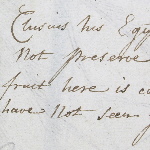 Clusius his Egyp
Not preserve
fruit here is co
have Not seen